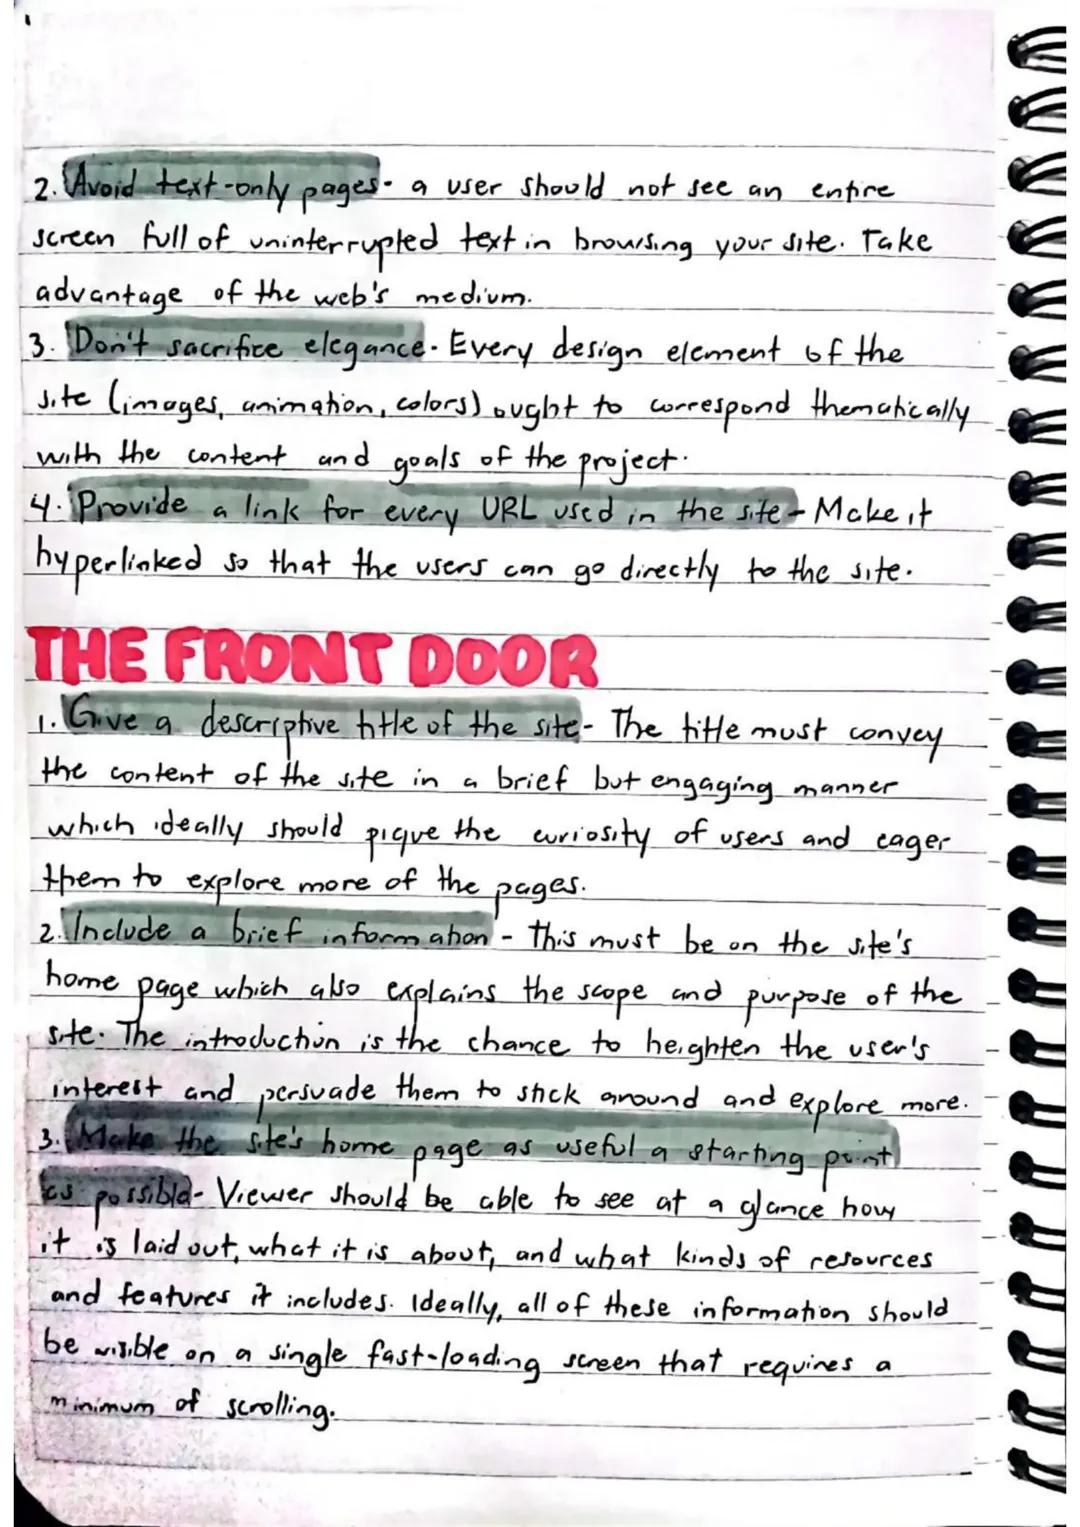 2. Avoid text-only pages- a user should not see an entire
screen full of uninterrupted text in browsing your site. Take
advantage of the web's medium.
3. Don't sacrifice elegance- Every design element of the
site (images, animation, colors) ought to correspond thematically
with the content and goals of the project.
4. Provide a link for every URL used in the site - Make it
hyperlinked so that the users can go directly to the site.
THE FRONT DOOR
1. Give a descriptive title of the site- The title must convey
the content of the site in a brief but engaging manner
which ideally should pique the curiosity of users and eager
them to explore more of the pages.
2. Include a brief information - This must be on the site's
home page which also explains the scope and purpose of the
site. The introduction is the chance to heighten the user's
interest and persuade them to stick around and explore more.
3. Make the site's home page as useful a starting point
as possible- Viewer should be able to see at a glance how
it is laid out, what it is about, and what kinds of resources
and features it includes. Ideally, all of these information should
be visible on a single fast-loading screen that requires a
minimum of scrolling.